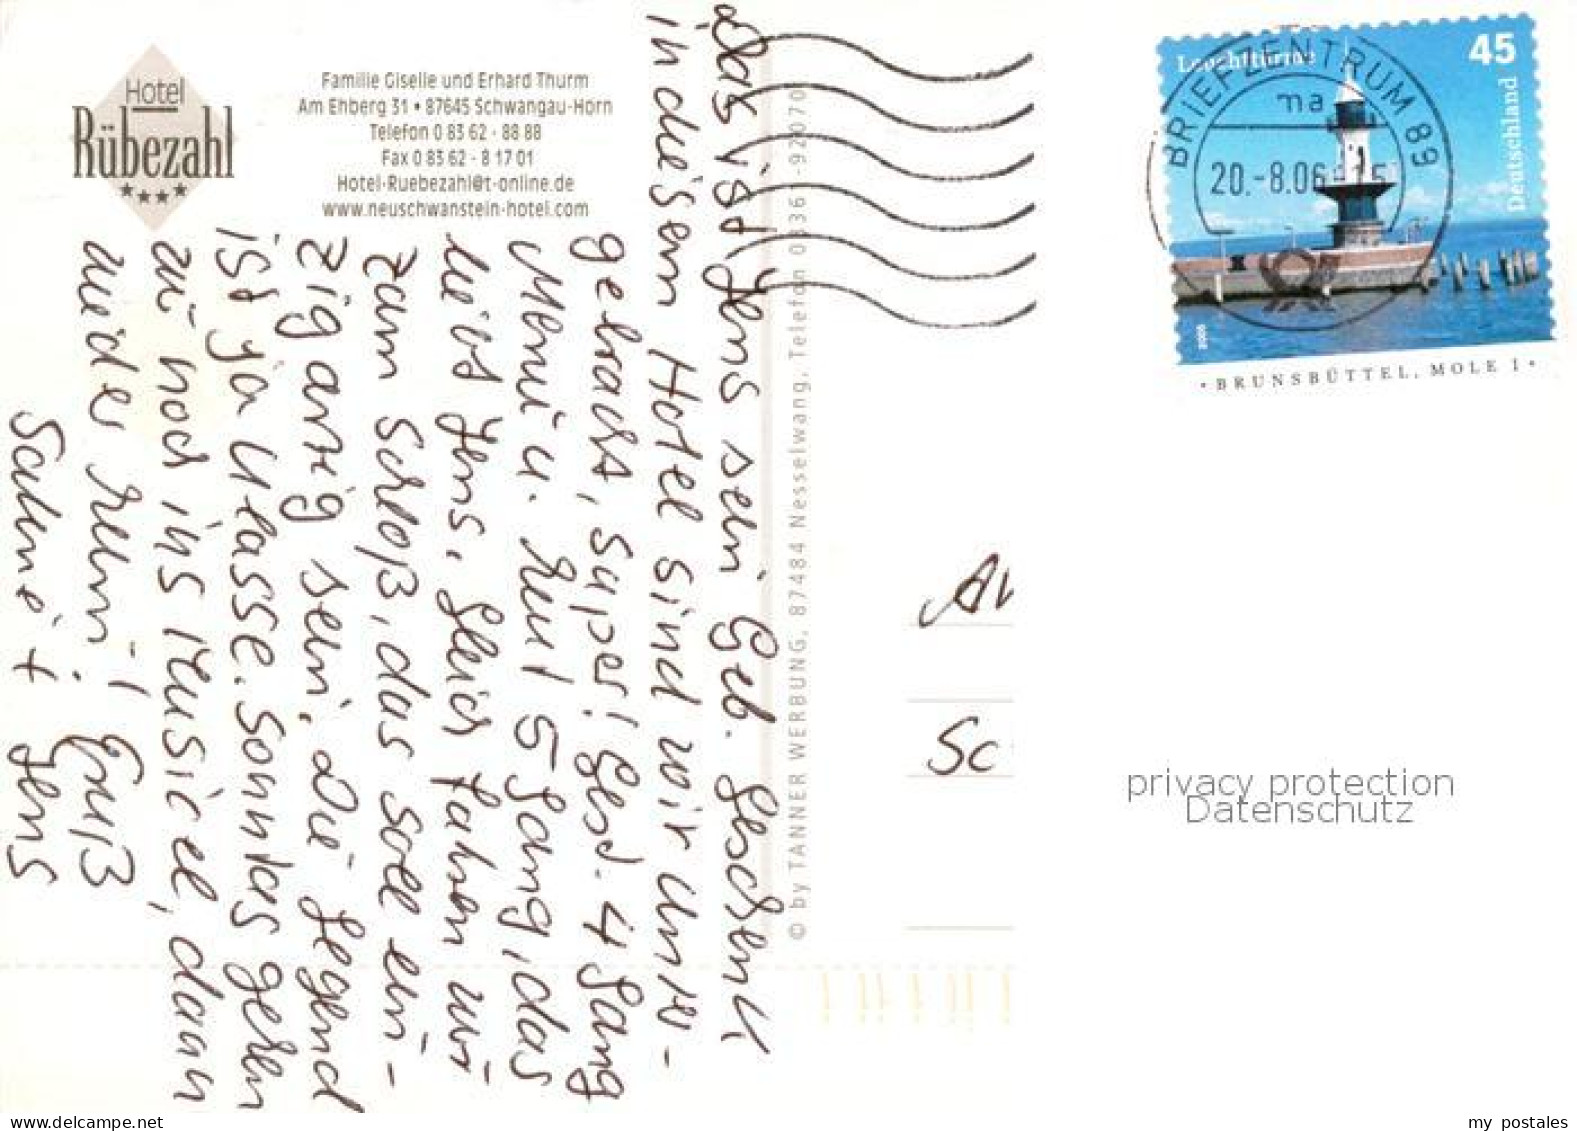 Hotel
Rübezahl
Familie Giselle und Erhard Thurm
Am Ehberg 31 • 87645 Schwangau-Horn
Telefon 0 83 62 - 88 88
Fax 0 83 62 - 8 17 01
Hotel-Ruebezahl@t-online.de
www.neuschwanstein-hotel.com
Das ist Jens sein Geb. Geschenk
in diesem Hotel sind wir unter-
gebracht, super! Gest. 4 Gang
Menü u. heut 5 Gang, das
liebt Jens. Gleich fahren wir
zum Schloß, das soll ein-
zigartig sein. Die Gegend
ist ja Klasse. Sonntag gehen
wir noch ins Musical, dann
wieder heim! Gruß
Sabine + Jens
© by TANNER WERBUNG, 87484 Nesselwang, Telefon 0 8361 - 92070
Leuchttürme
45
Deutschland
2005
• BRUNSBÜTTEL, MOLE 1 •
BRIEFZENTRUM 89
ma
20.-8.06
An
Sc
privacy protection
Datenschutz
my postales